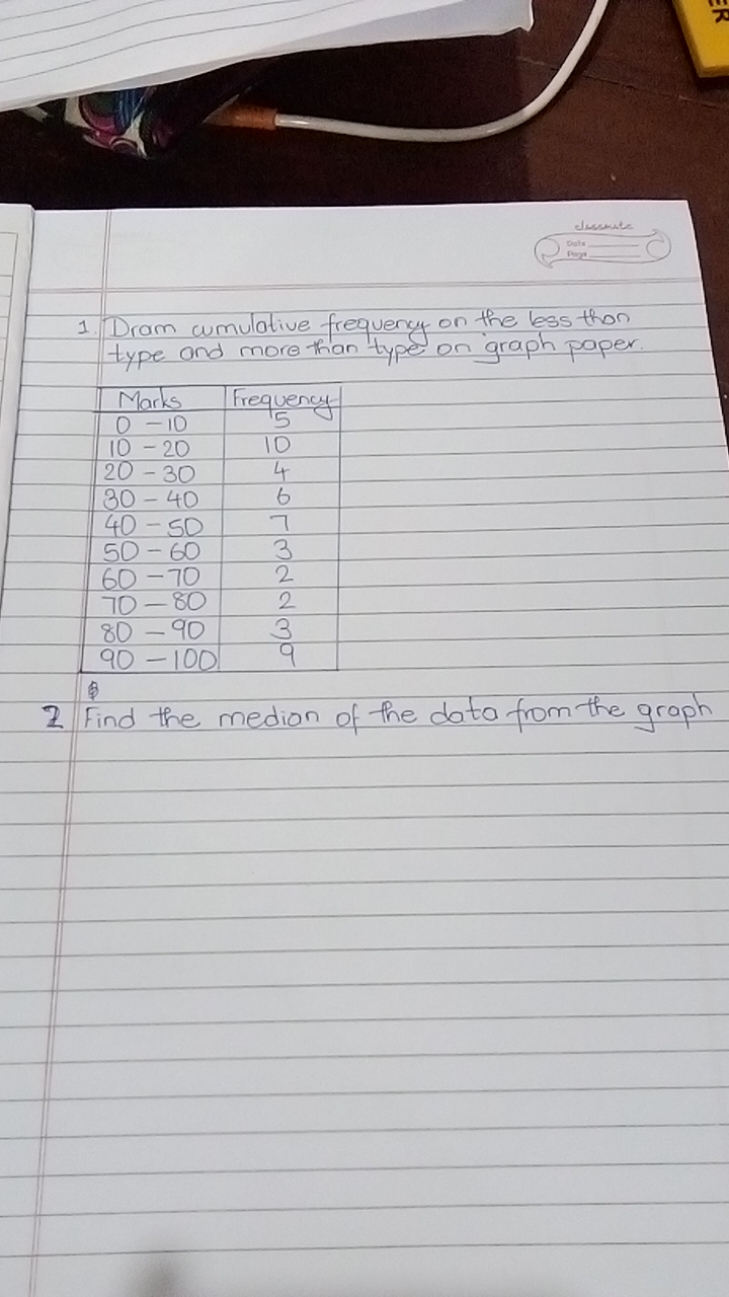 ER
classmate
Date
Page
1. Dram cumulative frequency on the less than
type and more than type on graph paper.
Marks Frequency
0 – 10 5
10 – 20 10
20 – 30 4
30 – 40 6
40 – 50 7
50 – 60 3
60 – 70 2
70 – 80 2
80 – 90 3
90 – 100 9
2 Find the median of the data from the graph